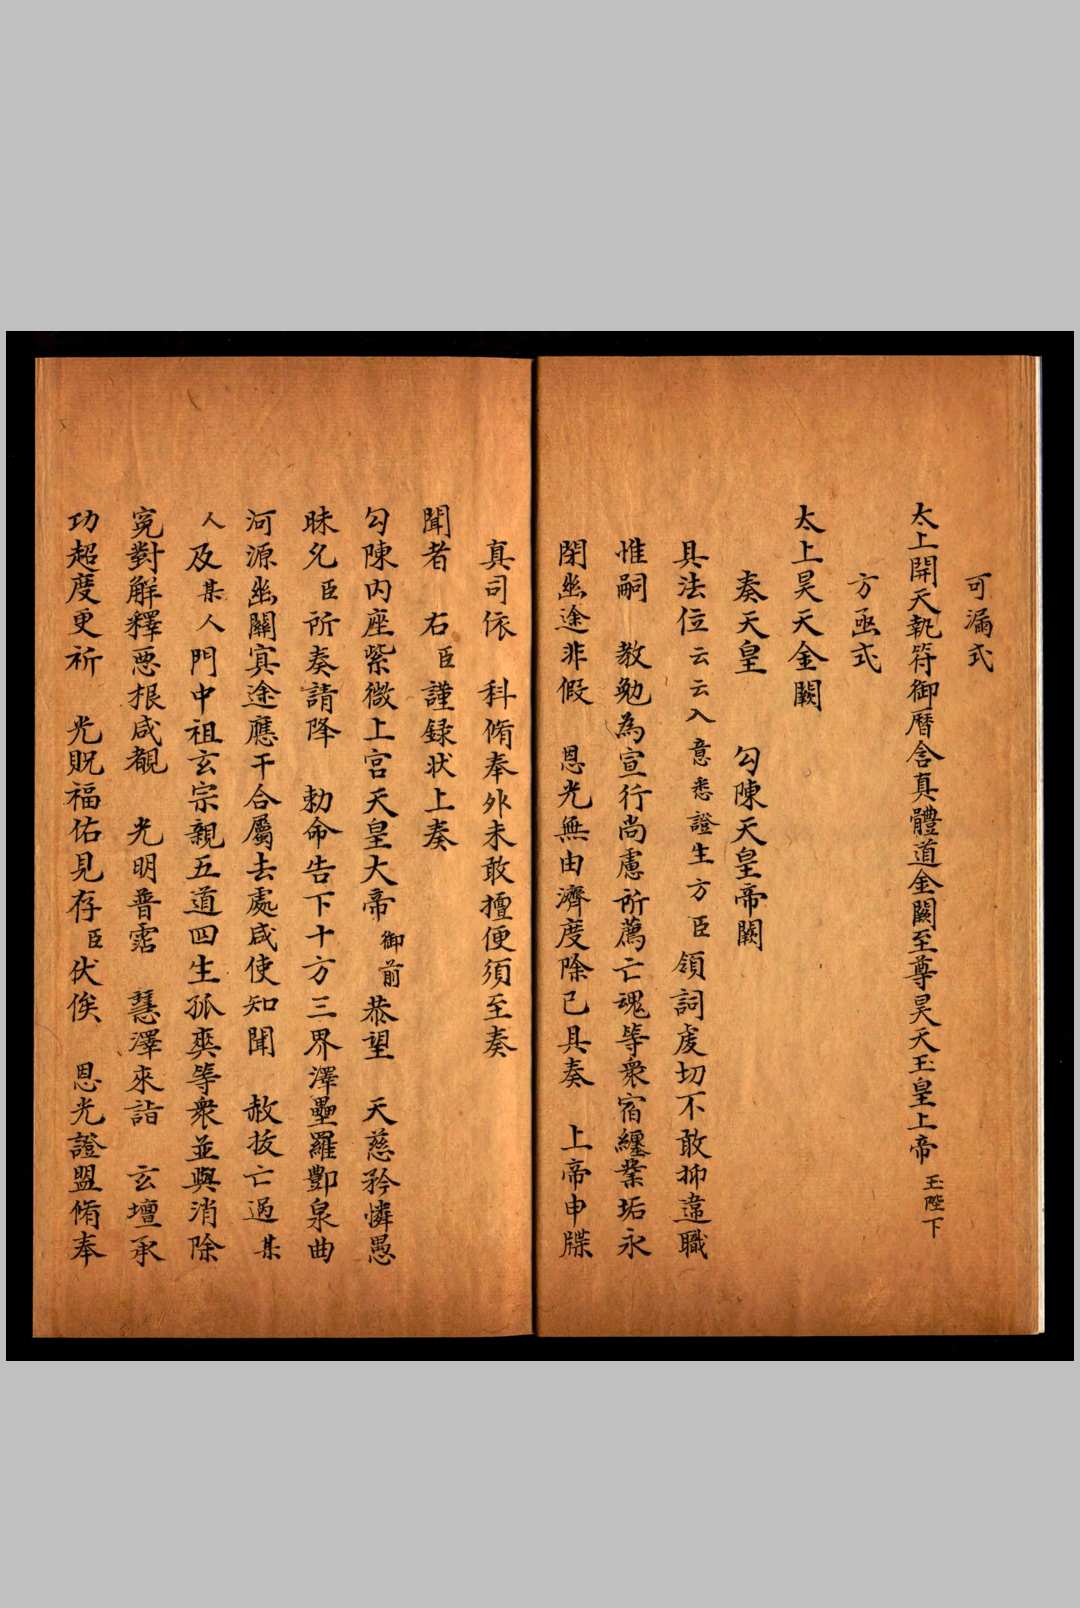 可漏式
太上開天執符御曆含真體道金闕至尊昊天玉皇上帝玉陛下
方函式
太上昊天金闕
奏天皇　　勾陳天皇帝闕
具法位云云入意悉證生方臣領詞虔切不敢抑違職
惟嗣　教勉為宣行尚慮所薦亡魂等衆宿纏業垢永
閉幽途非假　恩光無由濟度除已具奏　上帝申牒
真司依　科脩奉外未敢擅便須至奏
聞者　右臣謹録状上奏
勾陳内座紫微上宮天皇大帝御前恭望　天慈矜憐愚
昧允臣所奏請降　勅命告下十方三界澤壘羅酆泉曲
河源幽關冥途應干合屬去處咸使知聞　赦拔亡過某
人及某人門中祖玄宗親五道四生孤爽等衆並與消除
冤對解釋惡根咸覩　光明普霑　慧澤來詣　玄壇承
功超度更祈　光貺福佑見存臣伏俟　恩光證盟脩奉